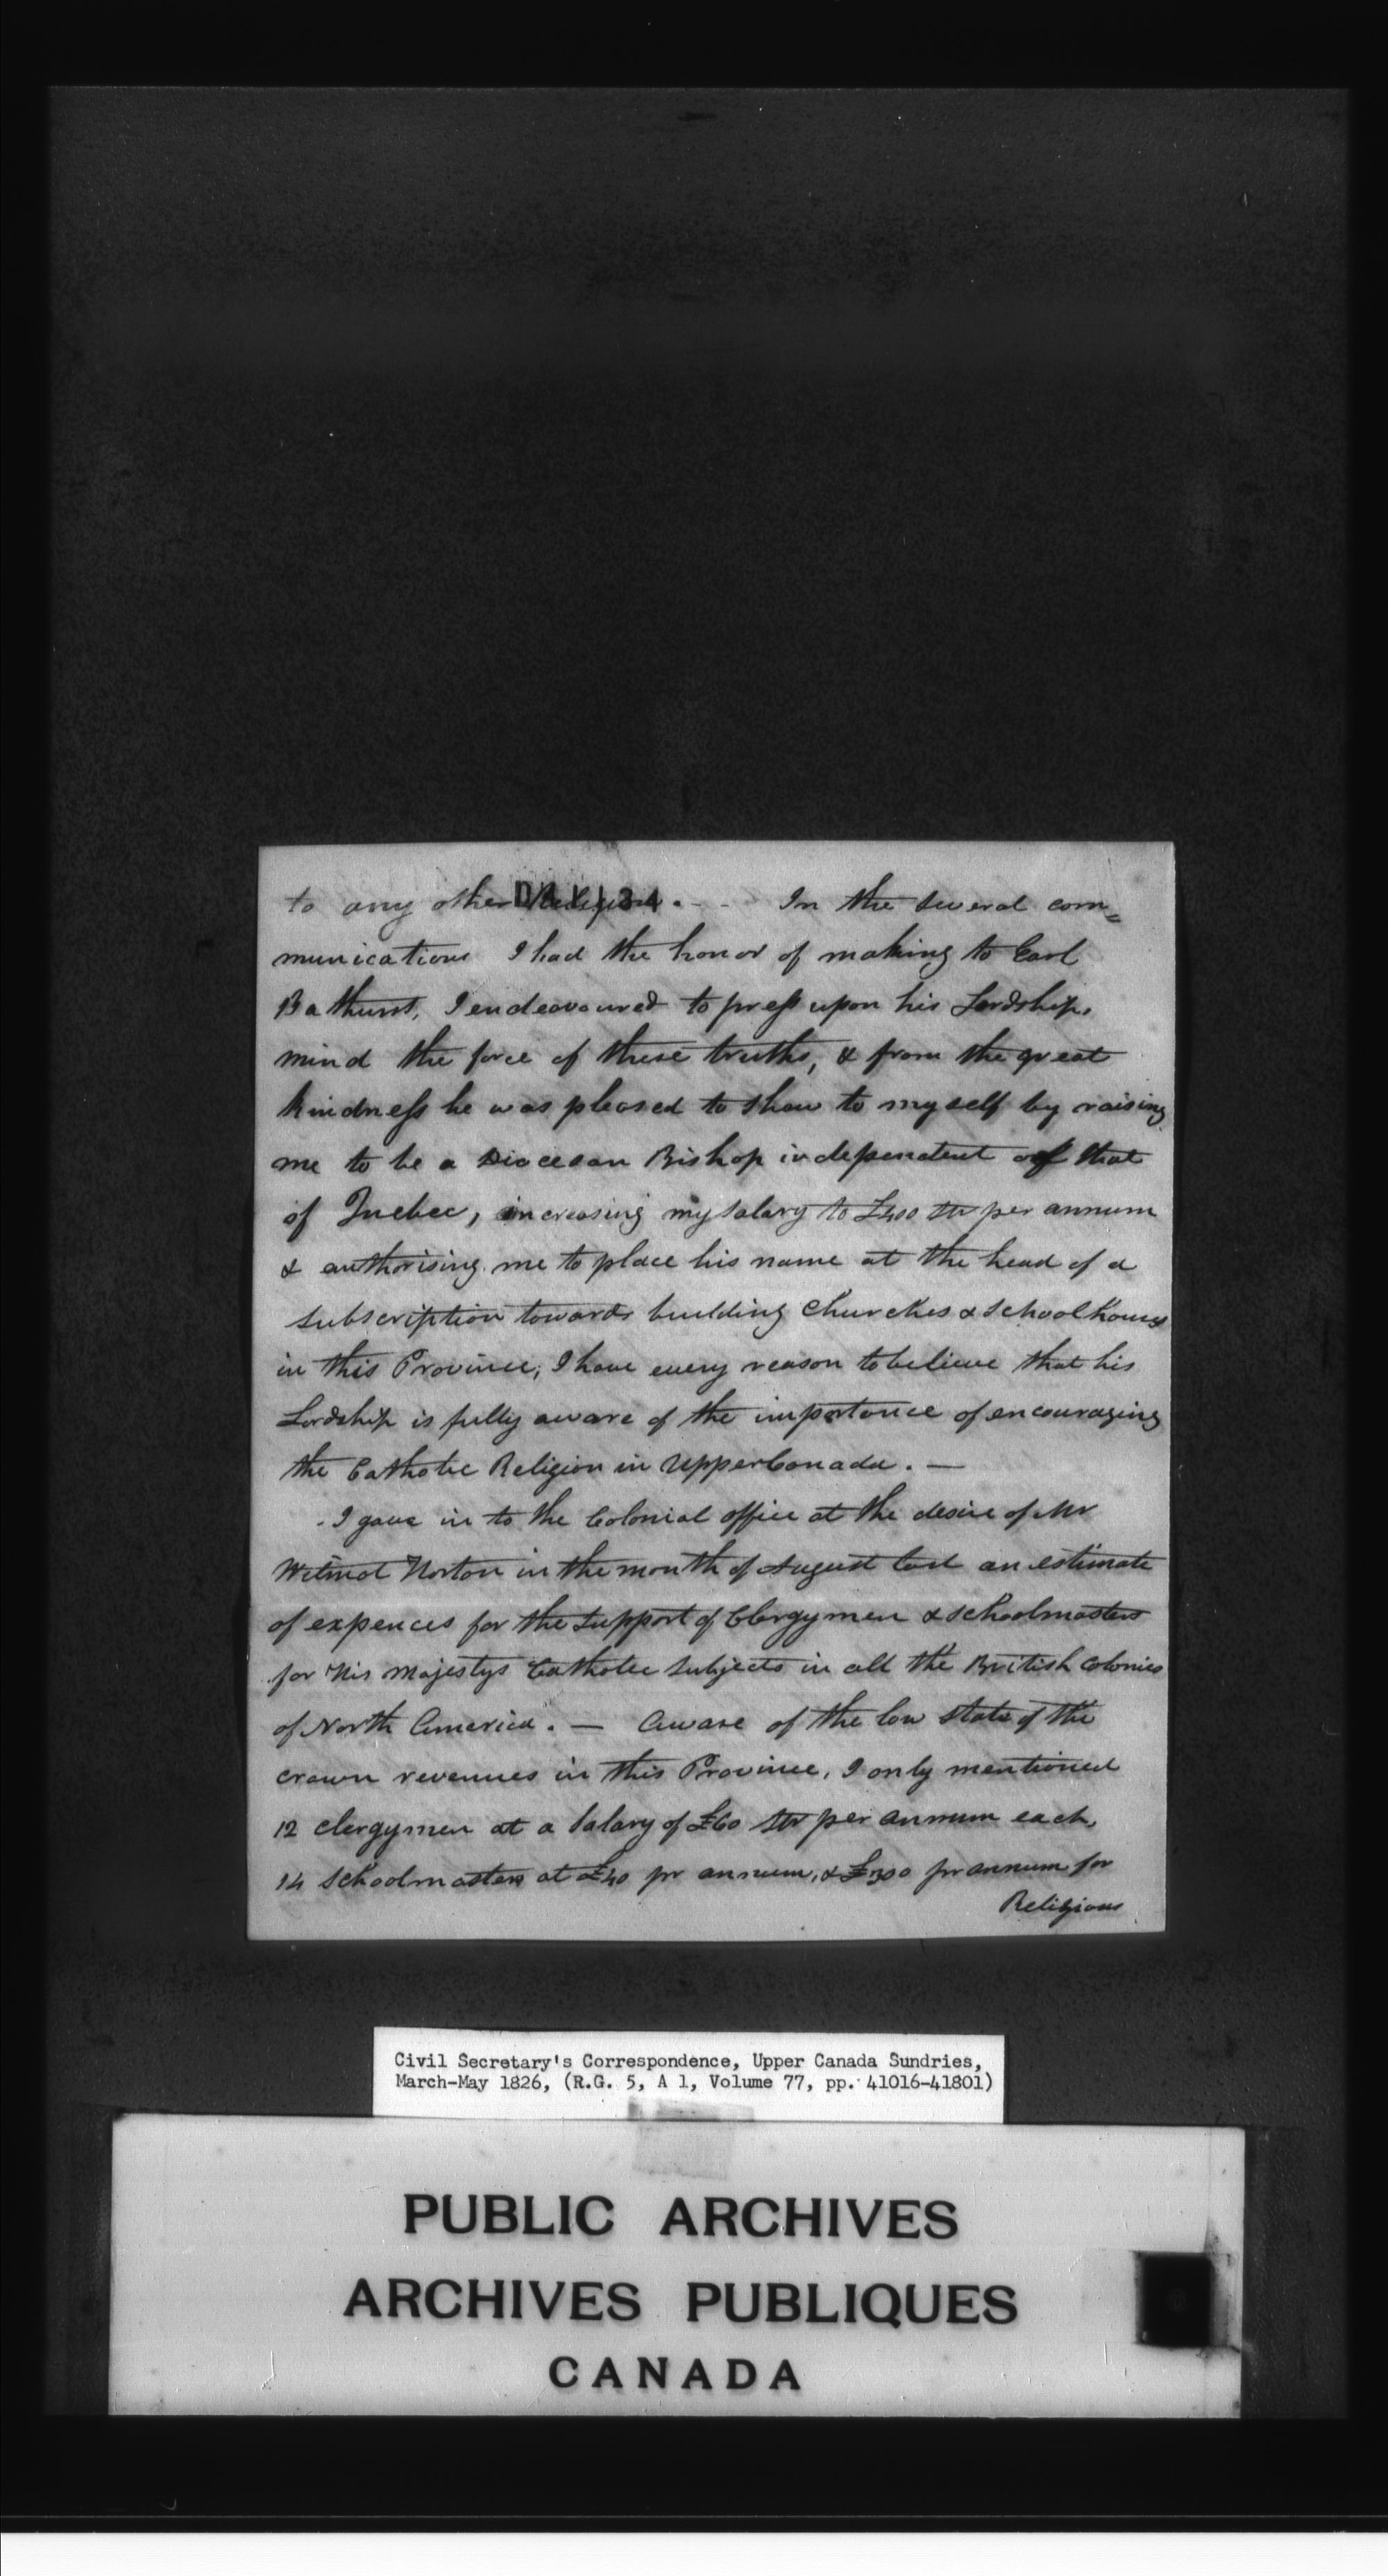 to any other Religion. - - In the several com=
munications I had the honor of making to Earl
Bathurst, I endeavoured to press upon his Lordships
mind the force of these truths, & from the great
kindness he was pleased to show to myself by raising
me to be a Diocesan Bishop independent of that
of Quebec, increasing my salary to £400 str per annum
& authorising me to place his name at the head of a
subscription towards building Churches & Schoolhouses
in this Province, I have every reason to believe that his
Lordship is fully aware of the importance of encouraging
the Catholic Religion in Upper Canada. —
I gave in to the Colonial office at the desire of Mr
Wilmot Horton in the month of August last an estimate
of expences for the support of Clergymen & schoolmasters
for His Majestys Catholic Subjects in all the British Colonies
of North America. — Aware of the low state of the
crown revenues in this Province, I only mentioned
12 clergymen at a Salary of £60 str per annum each,
14 Schoolmasters at £40 pr annum, & £300 pr annum for
Religious
Civil Secretary's Correspondence, Upper Canada Sundries,
March-May 1826, (R.G. 5, A 1, Volume 77, pp. 41016-41801)
PUBLIC ARCHIVES
ARCHIVES PUBLIQUES
CANADA